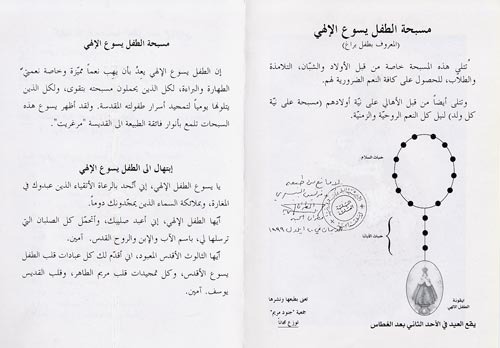 مسبحة الطفل يسوع الإلهي
(المعروف بطفل براغ)
تُتلى هذه المسبحة خاصة من قبل الأولاد والشبّان، التلامذة
والطلاب، للحصول على كافة النعم الضرورية لهم.
وتتلى أيضاً من قبل الأهالي على نيّة أولادهم (مسبحة على نيّة
كل ولد) لنيل كل النعم الروحيّة والزمنيّة.
حبات السلام
حبات الأبانا
ايقونة
الطفل الالهي
لا مانع من طبعه
١٩٩٦
تعنى بطبعها ونشرها
جمعية "جنود مريم"
توزع مجاناً
يقع العيد في الأحد الثاني بعد الغطاس
مسبحة الطفل يسوع الإلهي
إن الطفل يسوع الإلهي يعدّ بأن يهب نعماً مميّزة وخاصة نعمتيّ
الطهارة والبراءة، لكل الذين يحملون مسبحته بتقوى، ولكل الذين
يتلونها يومياً لتمجيد أسرار طفولته المقدسة. ولقد أظهر يسوع هذه
السبحات تلمع بأنوار فائقة الطبيعة الى القديسة "مرغريت".
إبتهال الى الطفل يسوع الإلهي
يا يسوع الطفل الإلهي، إني أتّحد بالرعاة الأتقياء الذين عبدوك في
المغارة، وبملائكة السماء الذين يمجّدونك دوماً.
أيّها الطفل الإلهي، إني أعبد صليبك، وأتحمّل كل الصلبان التي
ترسلها لي، باسم الآب والإبن والروح القدس. آمين.
أيّها الثالوث الأقدس المعبود، اني أقدّم لك كل عبادات قلب الطفل
يسوع الأقدس، وكل تمجيدات قلب مريم الطاهر، وقلب القديس
يوسف. آمين.